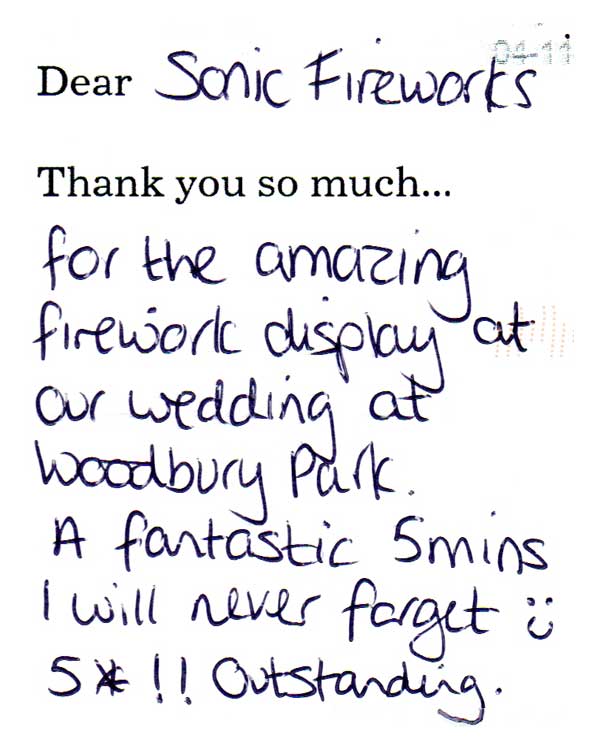 04-11
Dear Sonic Fireworks
Thank you so much...
for the amazing
firework display at
our wedding at
Woodbury Park.
A fantastic 5mins
I will never forget ☺
5*!! Outstanding.